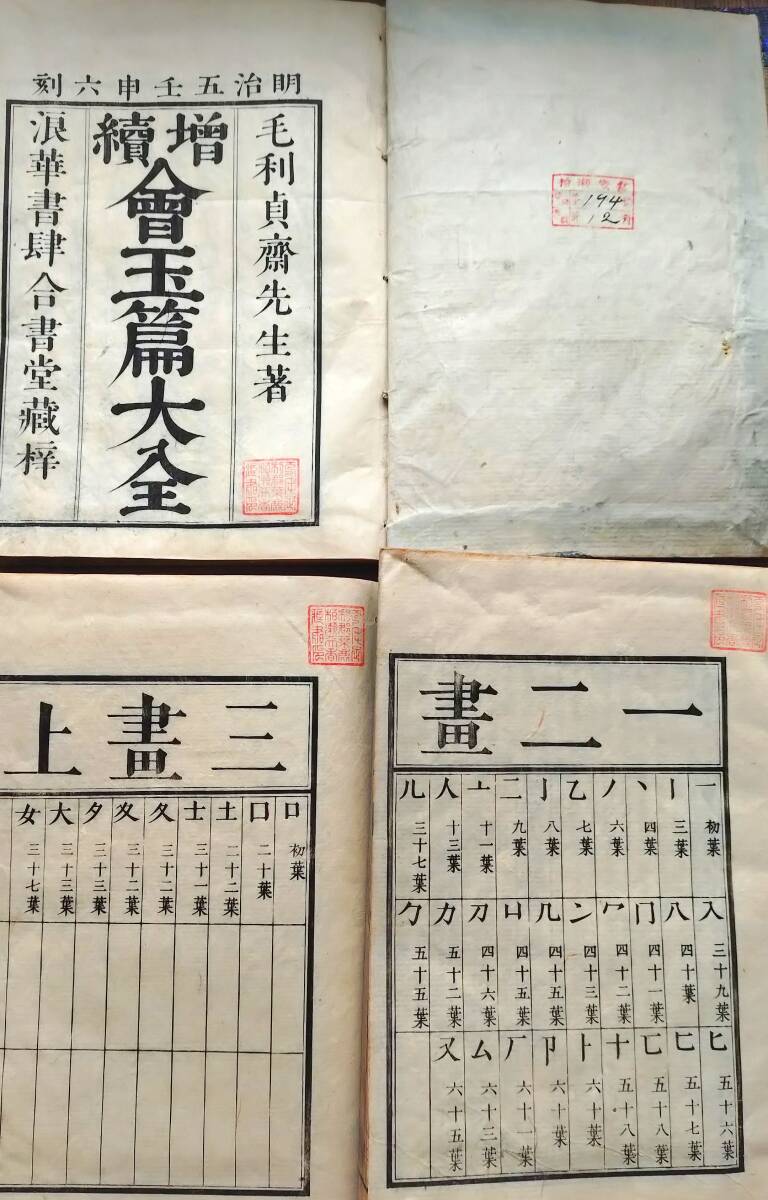 明治五壬申六刻
毛利貞齋先生著
增續
會玉篇大全
浪華書肆合書堂藏梓
194
12
一二畫
一 初葉
丨 三葉
丶 四葉
丿 六葉
乙 七葉
亅 八葉
二 九葉
亠 十一葉
人 十三葉
儿 三十七葉
入 三十九葉
八 四十葉
冂 四十一葉
冖 四十二葉
冫 四十三葉
几 四十五葉
凵 四十五葉
刀 四十六葉
力 五十二葉
勹 五十五葉
匕 五十六葉
匚 五十七葉
匸 五十八葉
十 五十八葉
卜 六十葉
卩 六十葉
厂 六十一葉
厶 六十三葉
又 六十五葉
三畫上
口 初葉
囗 二十葉
土 二十二葉
士 三十一葉
夂 三十二葉
夊 三十二葉
夕 三十三葉
大 三十三葉
女 三十七葉